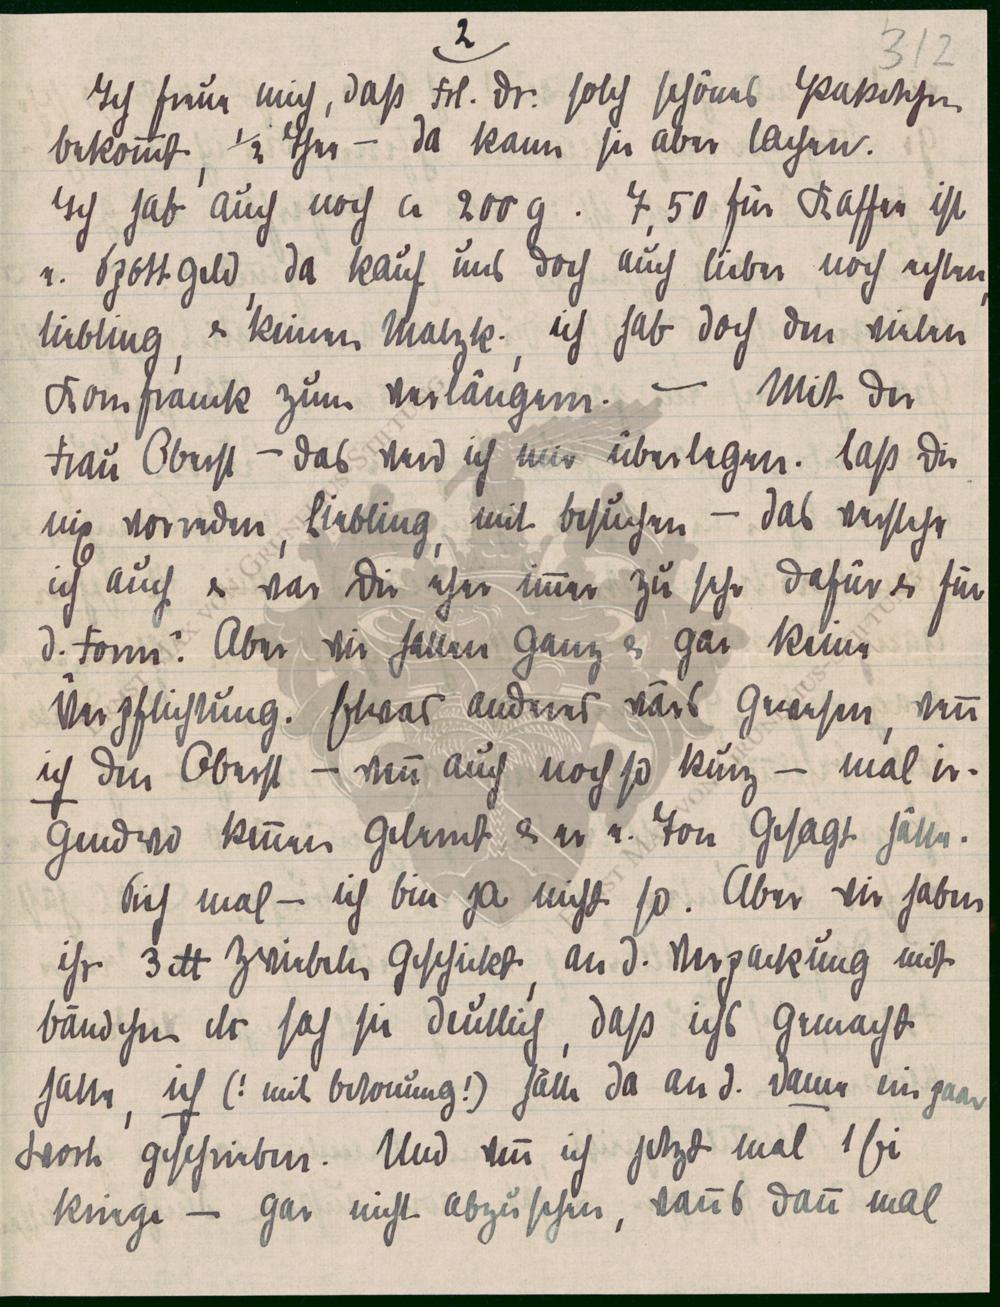 2
312
Ich freue mich, daß Frl. Dr. solch schönes Paketchen
bekom̄t, 1/2 Thee – da kann sie aber lachen.
Ich hab auch noch ca 200 g. 7,50 für Kaffee ist
e. Spottgeld, da kauf uns doch auch lieber noch echten,
liebling, & keinen Malzk., ich hab doch den vielen
Kornfranck zum verlängern. — Mit der
Frau Oberst – das werd ich mir überlegen. laß Dir
nix vorreden, Liebling, mit besuchen – das verstehe
ich auch & war Dir eher im̄er zu sehr dafür & für
d. Form". Aber wir hatten ganz & gar keine
Verpflichtung. Etwas anderes wärs gewesen, wen̄
ich den Oberst – wen̄ auch noch so kurz – mal ir-
gendwo ken̄en gelernt & er e. Ton gesagt hätte.
Sieh mal – ich bin ja nicht so. Aber wir haben
ihr 3 ℔ Zwiebeln geschickt, an d. Verpackung mit
bändchen etc sah sie deutlich, daß ichs gemacht
hatte, ich (! mit betonung!) hätte da an d. Dame ein paar
Worte geschrieben. Und wen̄ ich jetzt mal 1 Ei
kriege – gar nicht abzusehen, wan̄s dan̄ mal
ERNST MAX VON GRUNELIUS-STIFTUNG
ERNST MAX VON GRUNELIUS-STIFTUNG